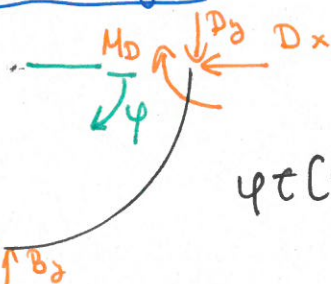 M_D D_y D_x
φ
φ ∈ [
B_y